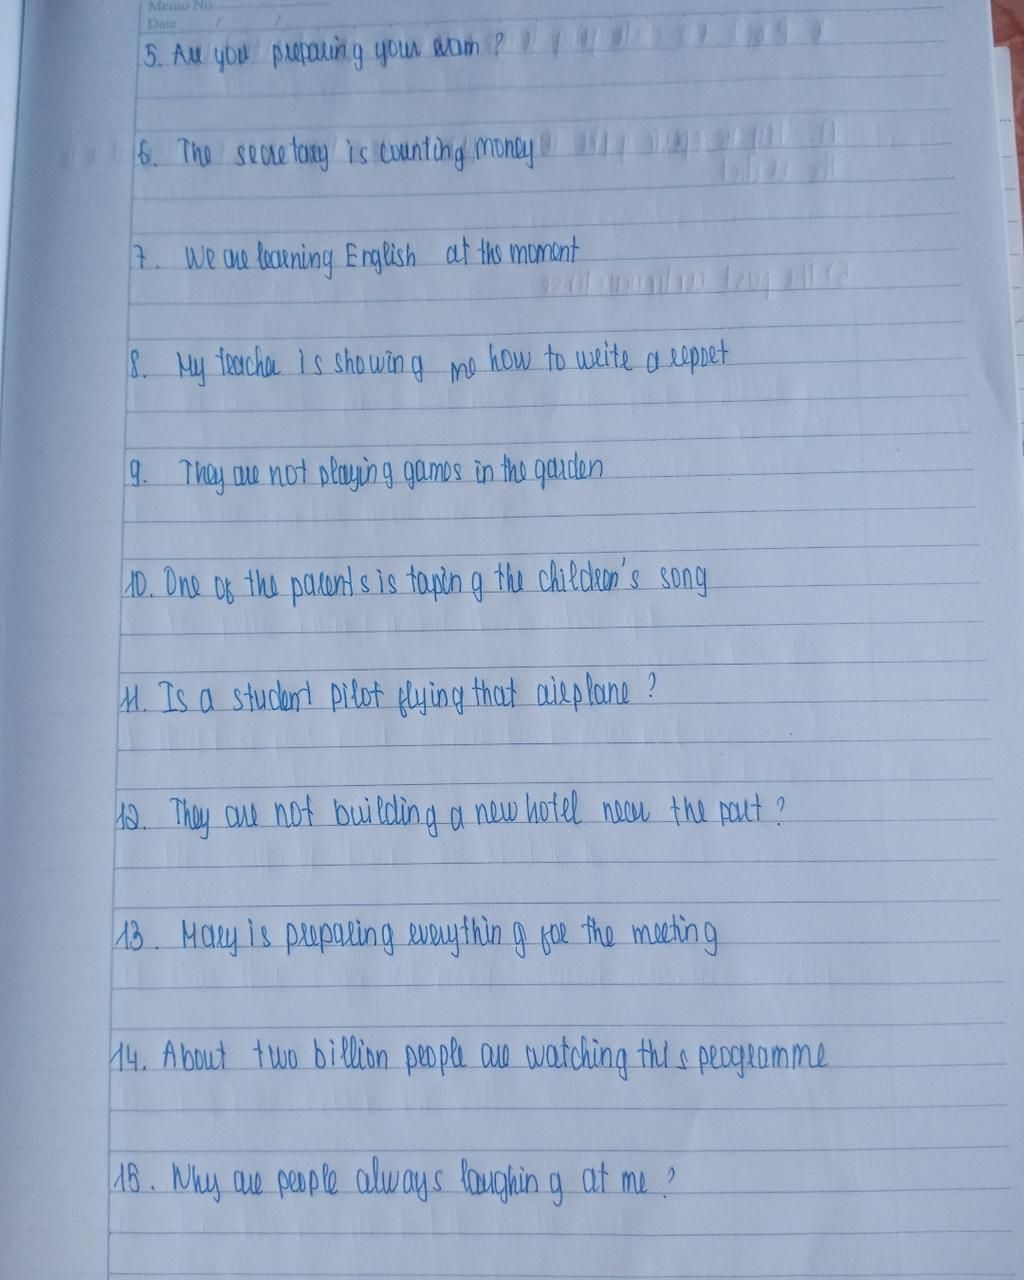 Memo No.
Date / /
5. Are you preparing your exam ?
6. The secretary is counting money
7. We are learning English at the moment
8. My teacher is showing me how to write a report
9. They are not playing games in the garden
10. One of the parents is taping the children's song
11. Is a student pilot flying that airplane ?
12. They are not building a new hotel near the port ?
13. Mary is preparing everything for the meeting
14. About two billion people are watching this programme
15. Why are people always laughing at me ?